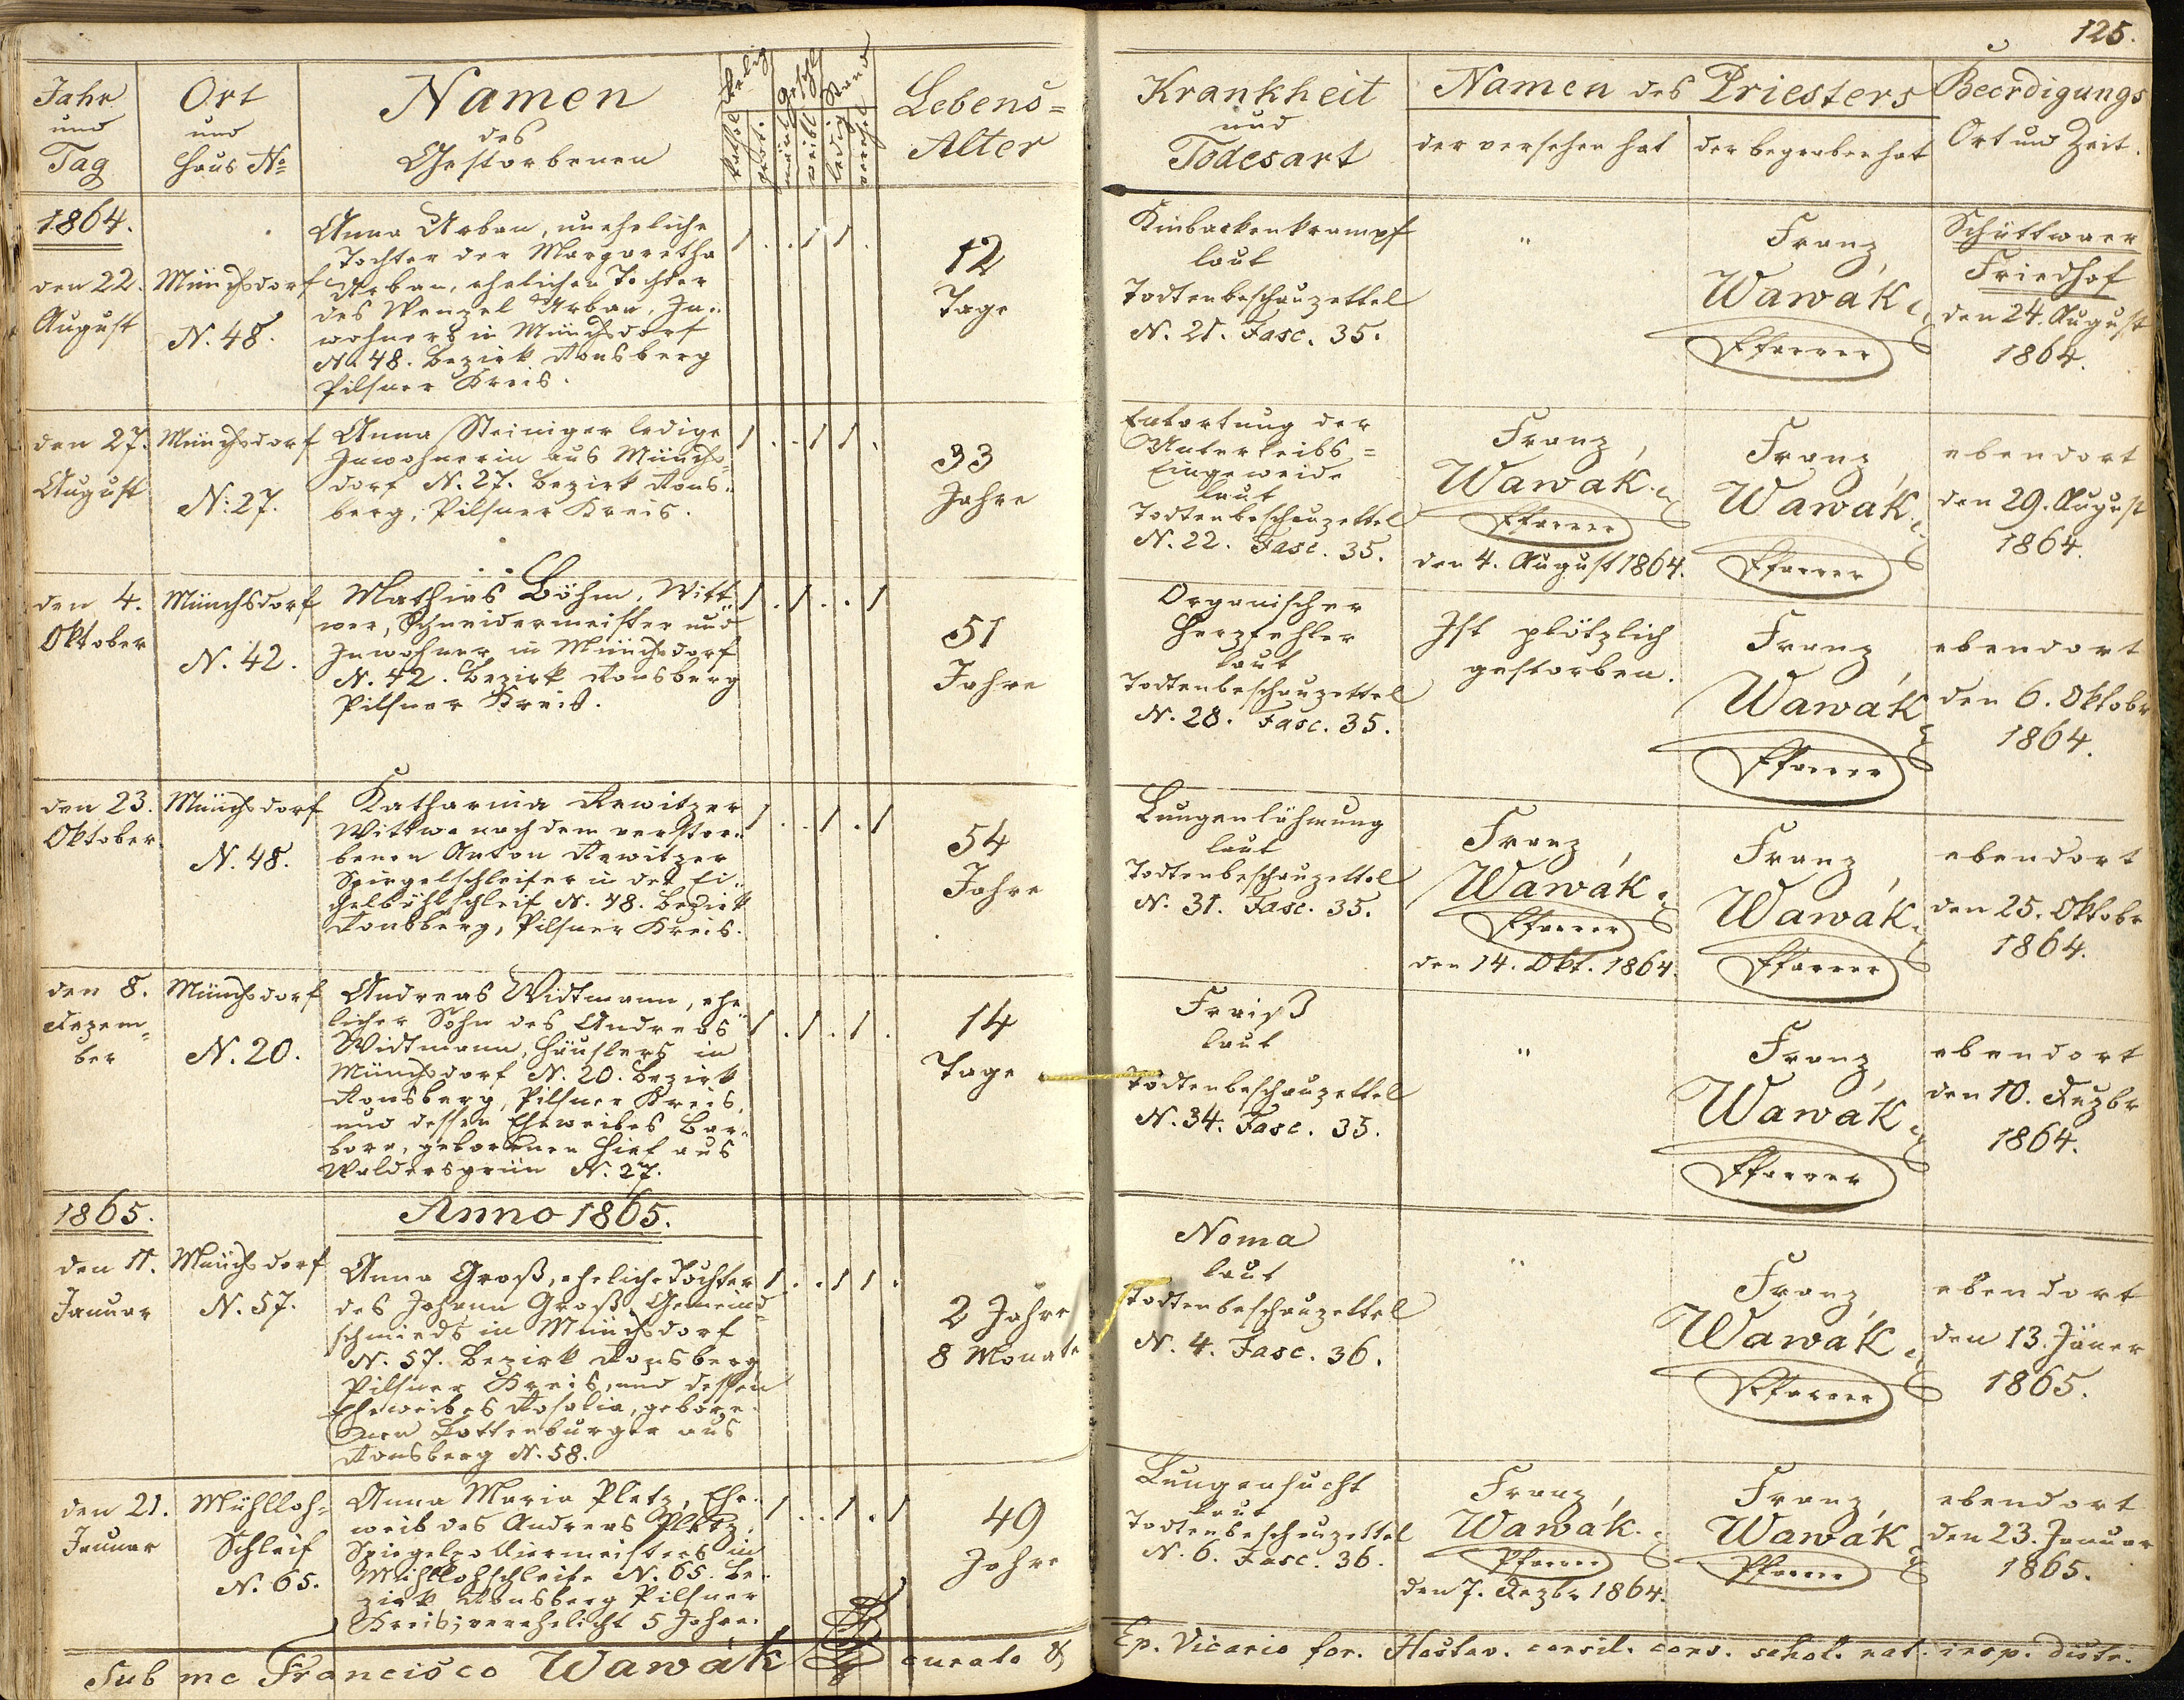 125.
Jahr
und
Tag
Ort
und
Haus No
Namen
des
Gestorbenen
Relig
kathol
prot.
Geschl
männl
weibl
Stand
ledig
verehel
Lebens=
Alter
Krankheit
und
Todesart
Namen des Priesters
der versehen hat
der begraben hat
Beerdigungs
Ort und Zeit.
1864.
den 22.
August
Münchsdorf
N. 48.
Anna Urban, uneheliche
Tochter der Margaretha
Urban, ehelichen Tochter
des Wenzel Urban, In-
wohners in Münchsdorf
No. 48. Bezirk Ronsberg
Pilsner Kreis.
1 . . 1 1 .
12
Tage
Kinbackenkrampf
laut
Todtenbeschauzettel
N. 21. Fasc. 35.
"
Franz
Wawák
Pfarrer
Schüttwaer
Friedhof
den 24. August
1864.
den 27.
August
Münchsdorf
N: 27.
Anna Steiniger ledige
Inwohnerin aus Münchs-
dorf N. 27. Bezirk Rons-
berg, Pilsner Kreis.
1 . . 1 1 .
33
Jahre
Entartung der
Unterleibs=
Eingeweide
laut
Todtenbeschauzettel
N. 22. Fasc. 35.
Franz
Wawák
Pfarrer
den 4. August 1864.
Franz
Wawák
Pfarrer
ebendort
den 29. August
1864.
den 4.
Oktober
Münchsdorf
N. 42.
Mathias Böhm, Witt-
wer, Schneidermeister und
Inwohner in Münchsdorf
N. 42. Bezirk Ronsberg
Pilsner Kreis.
1 . 1 . . 1
51
Jahre
Organischer
Herzfehler
laut
Todtenbeschauzettel
N. 28. Fasc. 35.
Ist plötzlich
gestorben.
Franz
Wawák
Pfarrer
ebendort
den 6. Oktobr
1864.
den 23.
Oktober
Münchsdorf
N. 48.
Katharina Rewitzer
Wittwe nach dem verstor-
benen Anton Rewitzer
Spiegelschleifer in der Ei-
chelbühlschleif N. 48. Bezirk
Ronsberg, Pilsner Kreis.
1 . . 1 . 1
54
Jahre
Lungenlähmung
laut
Todtenbeschauzettel
N. 31. Fasc. 35.
Franz
Wawák
Pfarrer
den 14. Okt. 1864.
Franz
Wawák
Pfarrer
ebendort
den 25. Oktobr
1864.
den 8.
Dezem-
ber
Münchsdorf
N. 20.
Andreas Widtmann, ehe-
licher Sohn des Andreas
Widtmann, Häuslers in
Münchsdorf N. 20. Bezirk
Ronsberg, Pilsner Kreis,
und dessen Eheweibes Bar-
bara, gebornen Hief aus
Waldersgrün N. 27.
1 . 1 . 1 .
14
Tage
Fraiß
laut
Todtenbeschauzettel
N. 34. Fasc. 35.
"
Franz
Wawák
Pfarrer
ebendort
den 10. Dezbr
1864.
1865.
Anno 1865.
den 11.
Januar
Münchsdorf
N. 57.
Anna Groß, eheliche Tochter
des Johann Groß, Gemeind-
schmieds in Münchsdorf
N. 57. Bezirk Ronsberg
Pilsner Kreis, und dessen
Eheweibes Rosalia, gebore-
nen Rottenburger aus
Ronsberg N. 58.
1 . . 1 1 .
2 Jahre
8 Monate
Noma
laut
Todtenbeschauzettel
N. 4. Fasc. 36.
"
Franz
Wawák
Pfarrer
ebendort
den 13. Jäner
1865.
den 21.
Januar
Mühlloh-
Schleif
N. 65.
Anna Maria Platz, Ehe-
weib des Andreas Platz,
Spiegelpolliermeisters in
Mühllohschleife N. 65. Be-
zirk Ronsberg Pilsner
Kreis; verehelicht 5 Jahre.
1 . . 1 . 1
49
Jahre
Lungensucht
laut
Todtenbeschauzettel
N. 6. Fasc. 36.
Franz
Wawák
Pfarrer
den 7. Dezbr 1864.
Franz
Wawák
Pfarrer
ebendort
den 23. Januar
1865.
Sub me Francisco Wawák curato & Ep. Vicario for. Hostav. consil. cons. schol. nat. insp. distr.